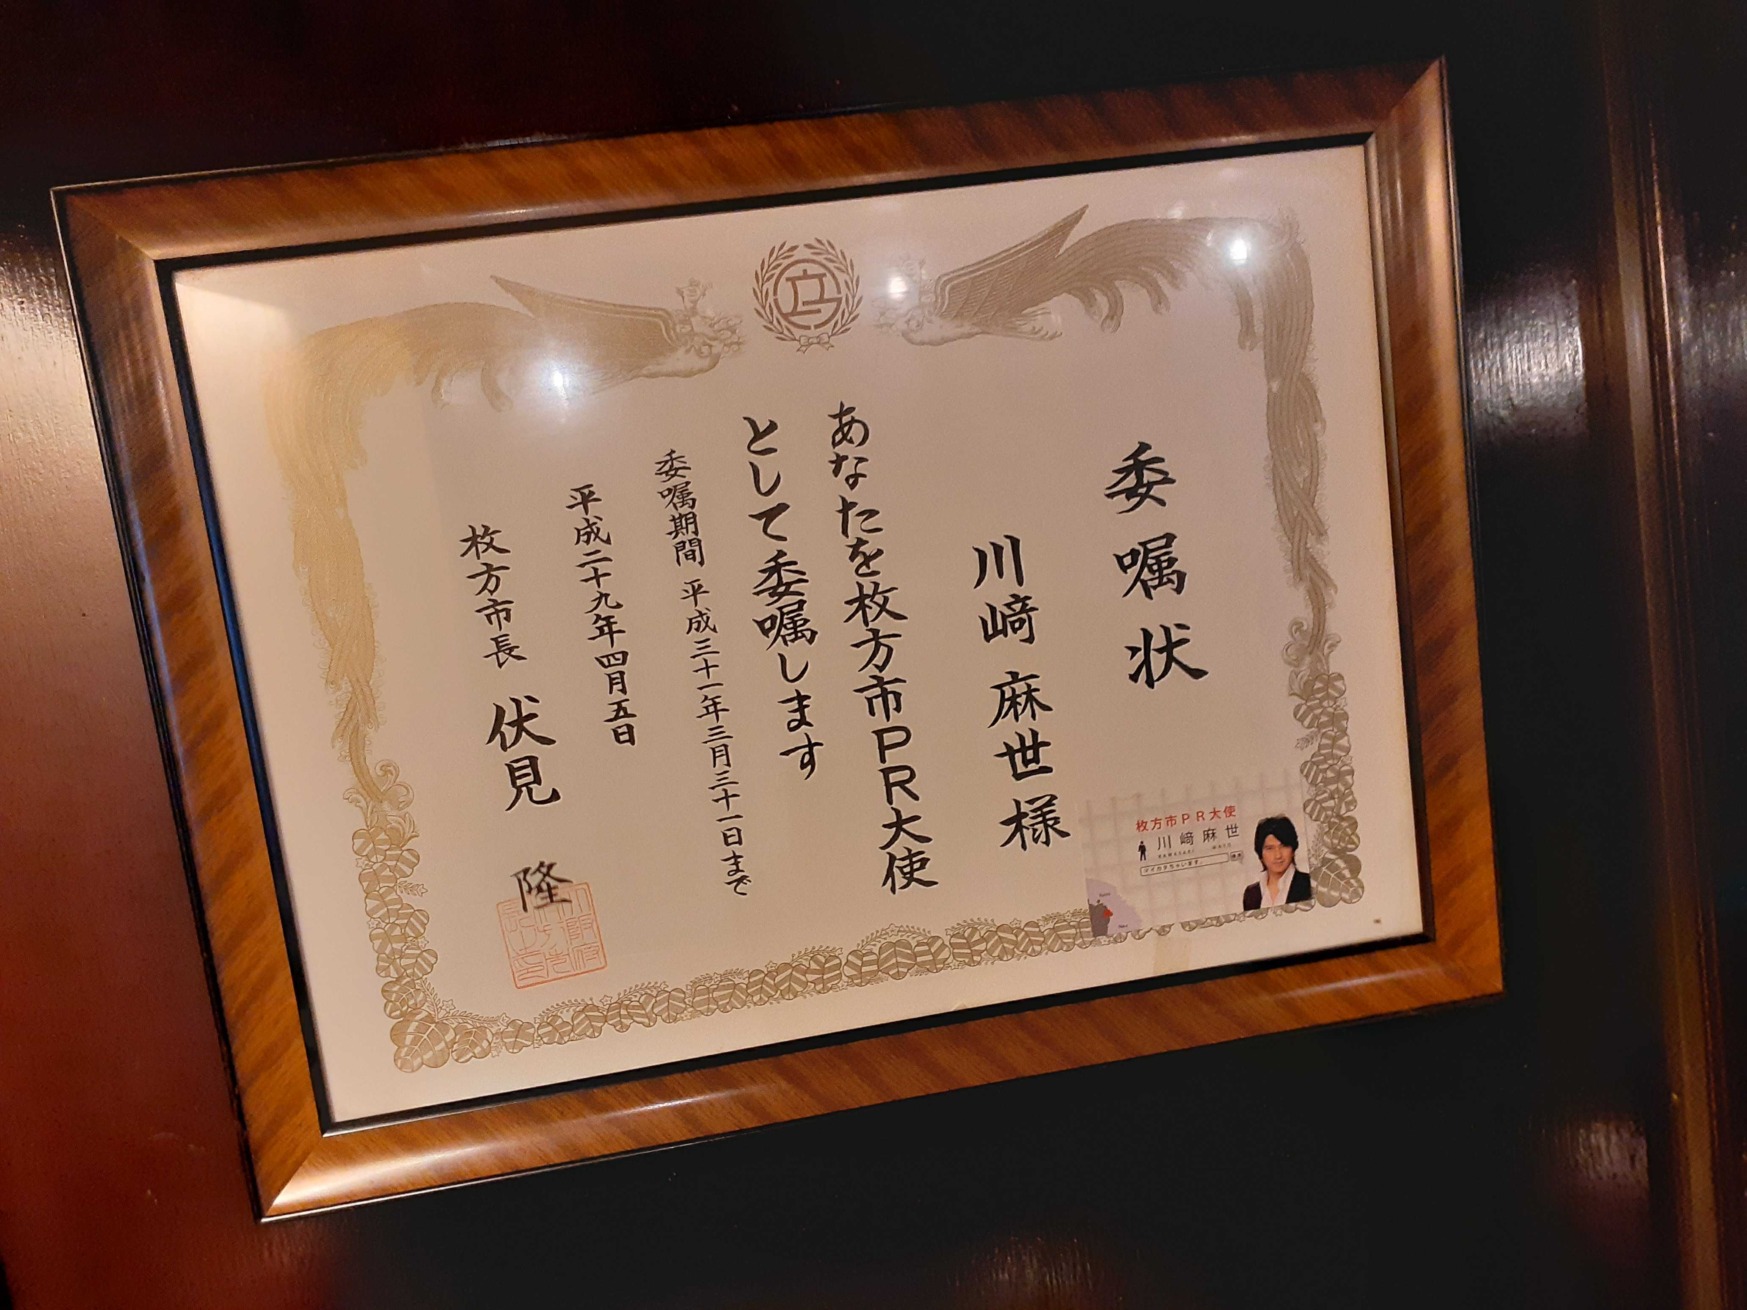 委嘱状
川﨑麻世様
あなたを枚方市PR大使
として委嘱します
委嘱期間 平成三十一年三月三十一日まで
平成二十九年四月五日
枚方市長 伏見 隆
枚方市PR大使
川﨑麻世